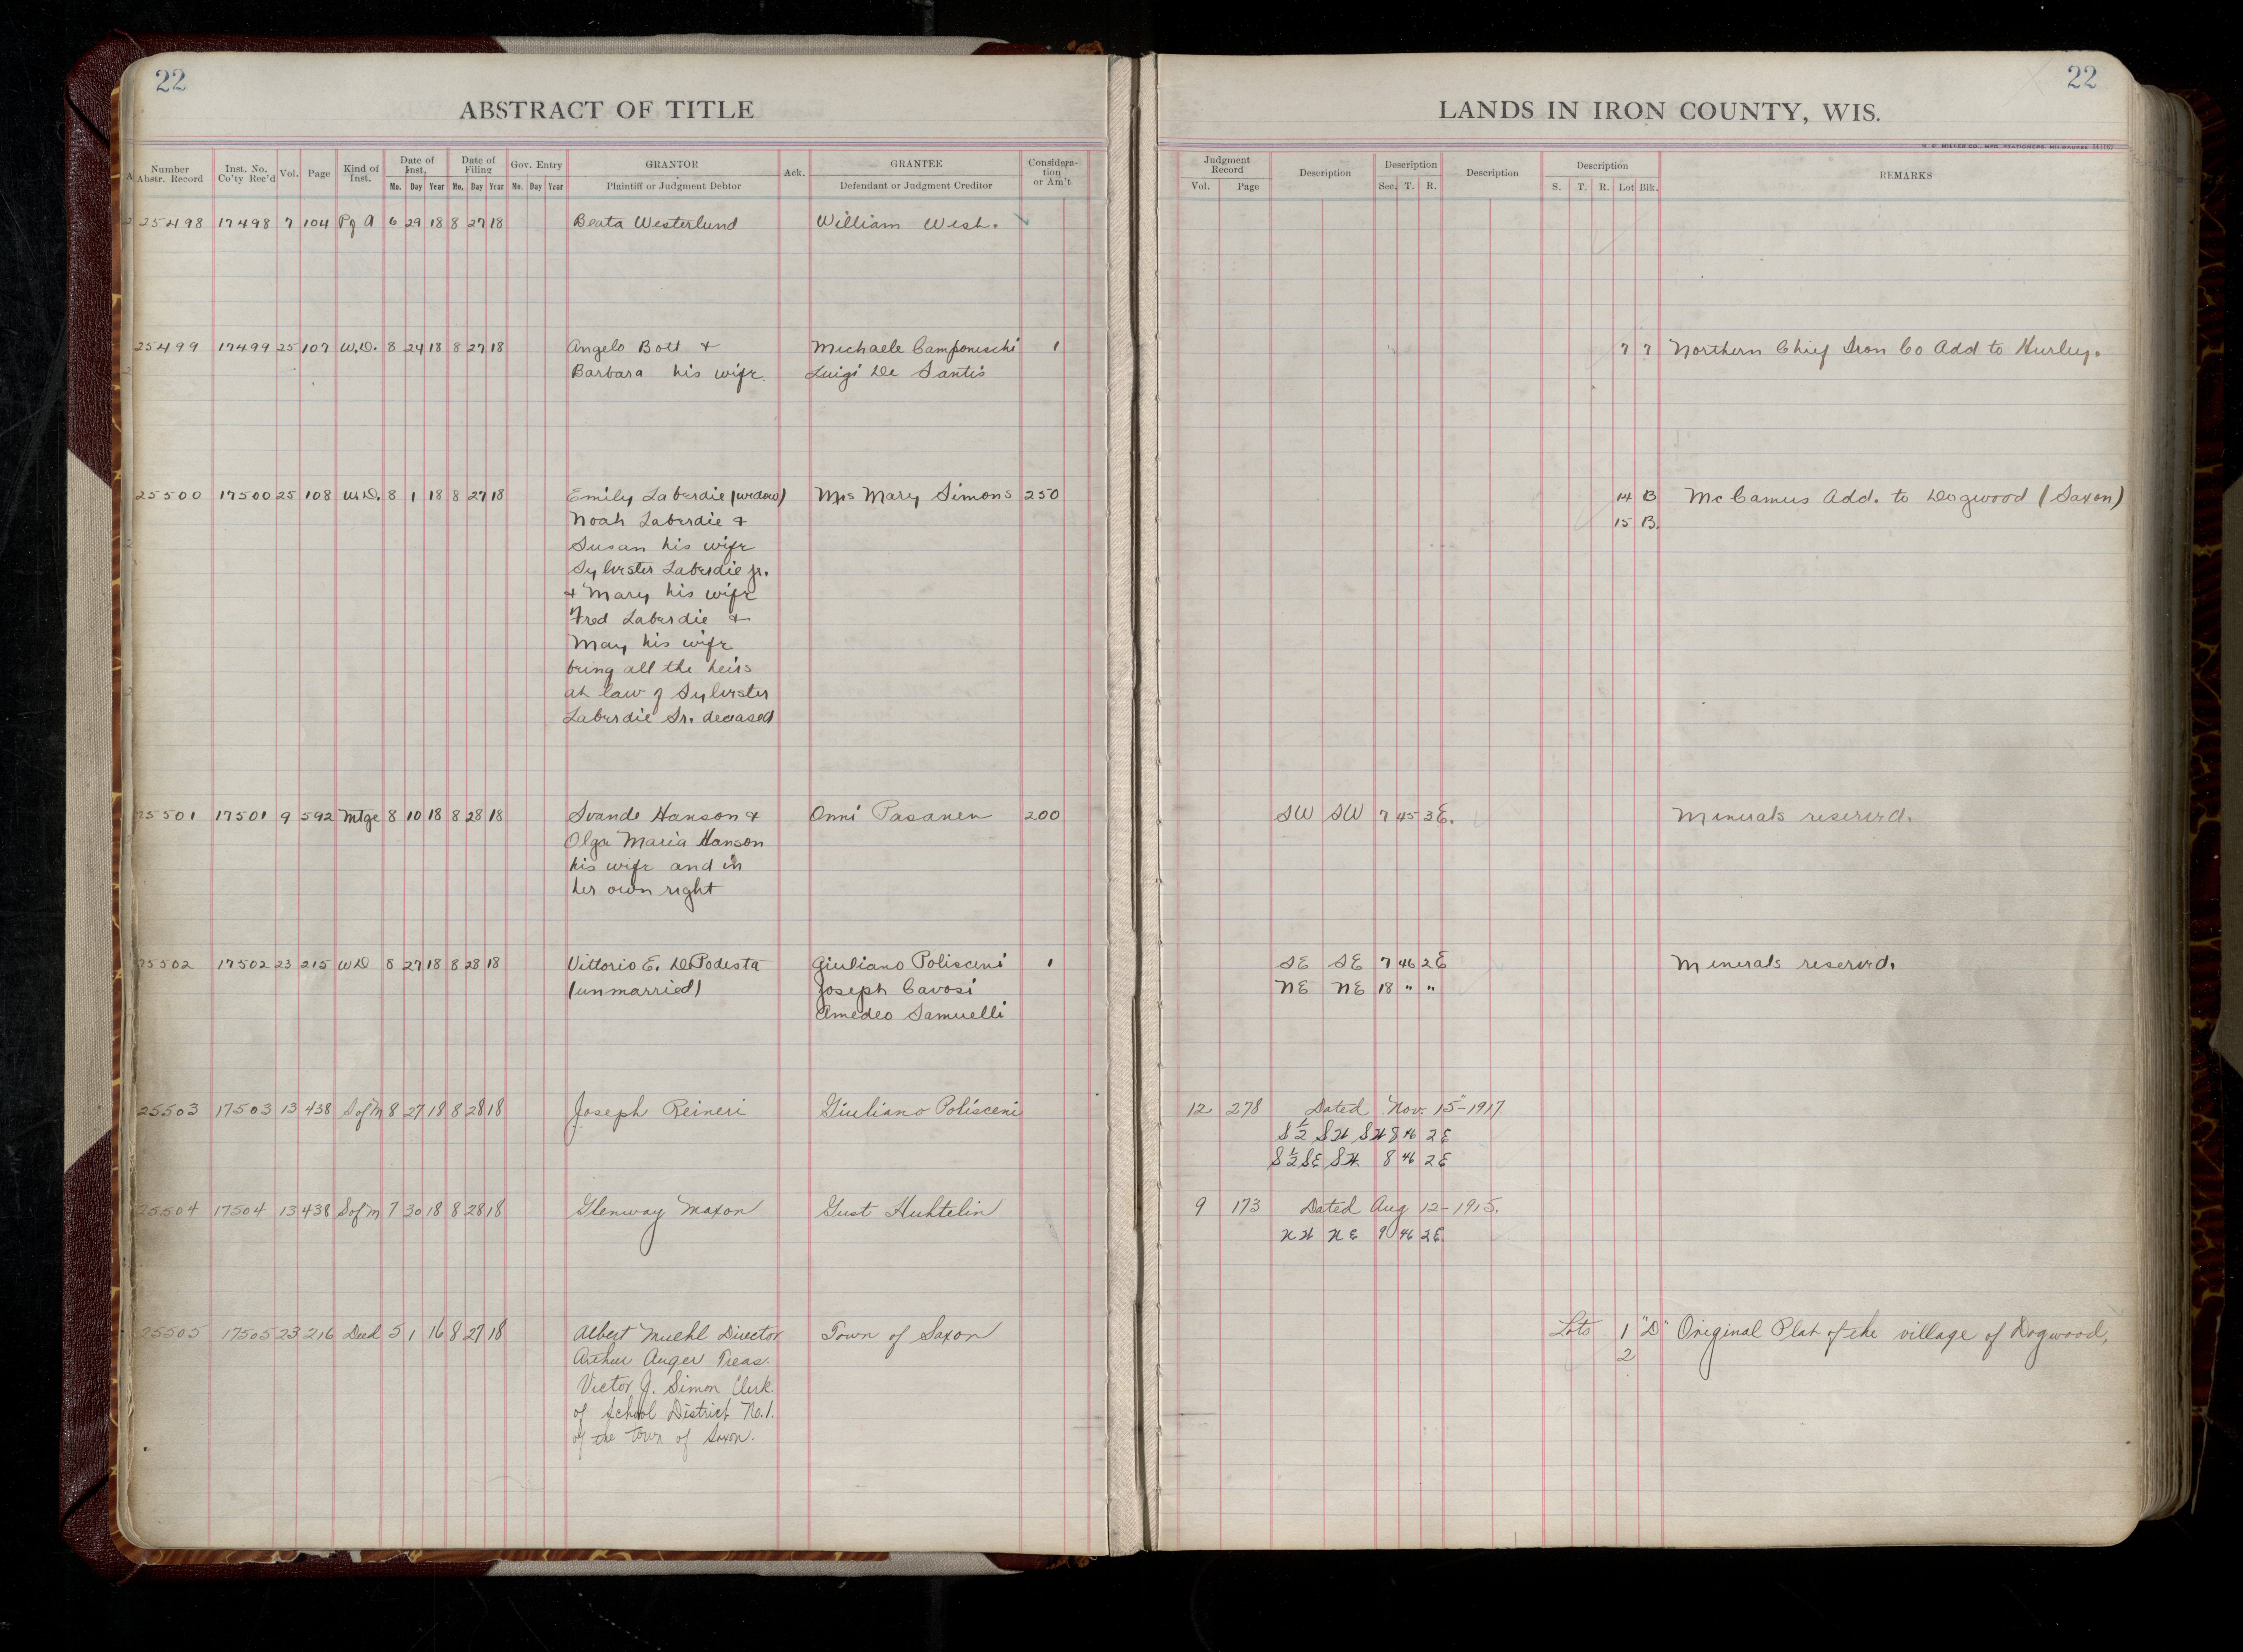 22
ABSTRACT OF TITLE
Number Abstr. Record Inst. No. Co'ty Rec'd Vol. Page Kind of Inst. Date of Inst. Mo. Day Year Date of Filing Mo. Day Year Gov. Entry No. Day Year GRANTOR Plaintiff or Judgment Debtor Ack. GRANTEE Defendant or Judgment Creditor Considera-tion or Am't
25498 17498 7 104 Pg A 6 29 18 8 27 18 Beata Westerlund William Wish.
25499 17499 25 107 W.D. 8 24 18 8 27 18 Angelo Bott + Michaele Camponischi 1
Barbara his wife Luigi De Santis
25500 17500 25 108 W.D. 8 1 18 8 27 18 Emily Laberdie (widow) Mrs Mary Simons 250
Noah Laberdie +
Susan his wife
Sylvester Laberdie jr.
+ Mary his wife
Fred Laberdie +
May his wife
being all the heirs
at law of Sylvester
Laberdie Sr. deceased
25501 17501 9 592 Mtge 8 10 18 8 28 18 Svande Hanson + Onni Pasanen 200
Olga Maria Hanson
his wife and in
her own right
25502 17502 23 215 WD 8 27 18 8 28 18 Vittorio E. DePodesta Giuliano Polisceni 1
(unmarried) Joseph Cavosi
Amedeo Samuelli
25503 17503 13 438 S of M 8 27 18 8 28 18 Joseph Reineri Giuliano Polisceni
25504 17504 13 438 S of M 7 30 18 8 28 18 Glenway Maxon Gust Huhtelin
25505 17505 23 216 Deed 5 1 16 8 27 18 Albert Muehl Director Town of Saxon
Arthur Auger Treas.
Victor J. Simon Clerk.
of School District No. 1.
of the Town of Saxon.
22
LANDS IN IRON COUNTY, WIS.
H. C. MILLER CO., MFG. STATIONERS, MILWAUKEE
Judgment Record Vol. Page Description Description Sec. T. R. Description Description S. T. R. Lot Blk. REMARKS
7 7 Northern Chief Iron Co Add to Hurley.
14 B McCamus Add. to Dogwood (Saxon)
15 B.
SW SW 7 45 3E. Minerals reserved.
SE SE 7 46 2E Minerals reserved.
NE NE 18 " "
12 278 Dated Nov. 15-1917
S½ SW SW 8 46 2E
S½ SE SW. 8 46 2E
9 173 Dated Aug 12-1915.
NW NE 9 46 2E.
Lots 1 "D" Original Plat of the village of Dogwood,
2